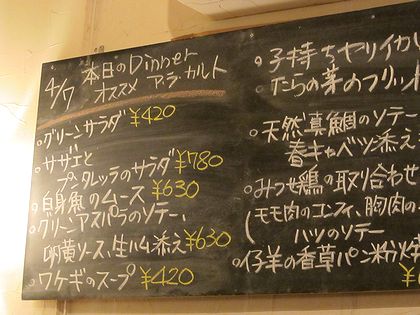 4/7 本日のDinner
オススメ アラカルト
○グリーンサラダ ¥420
○サザエと
プンタレッラのサラダ ¥780
○白身魚のムース ¥630
○グリーンアスパラのソテー、
卵黄ソース、生ハム添え ¥630
○ワケギのスープ ¥420
○子持ちヤリイカ
たらの芽のフリット
○天然真鯛のソテー
春キャベツ添え
○みつせ鶏の取り合わせ
(モモ肉のコンフィ、胸肉の
ハツのソテー
○仔羊の香草パン粉焼
¥